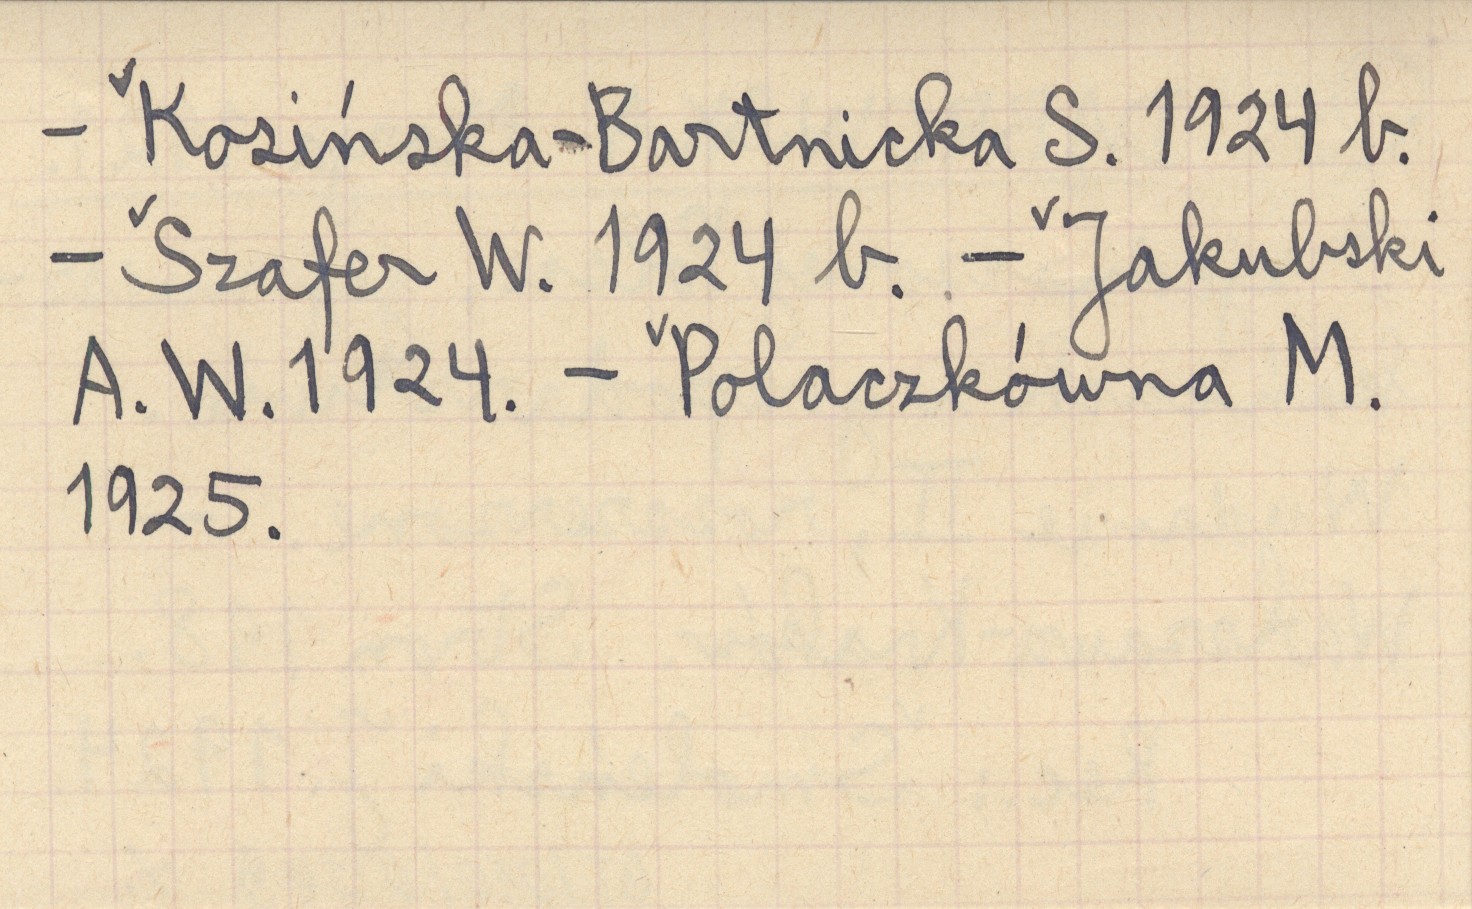 - ˇKosińska-Bartnicka S. 1924 b.
- ˇSzafer W. 1924 b. - ˇJakubski
A. W. 1924. - ˇPolaczkówna M.
1925.